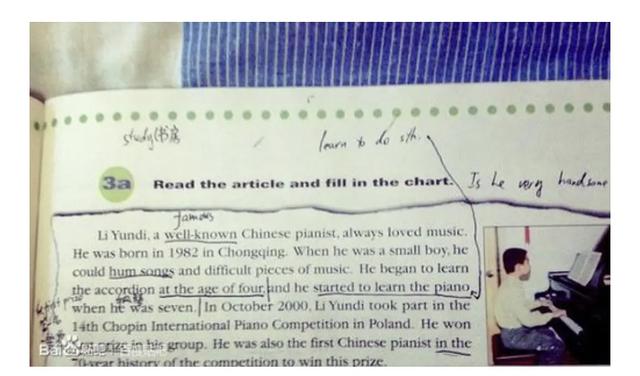 study(书房
learn to do sth.
3a Read the article and fill in the chart.
Is he very handsome
famous
Li Yundi, a well-known Chinese pianist, always loved music.
He was born in 1982 in Chongqing. When he was a small boy, he
could hum songs and difficult pieces of music. He began to learn
the accordion at the age of four, and he started to learn the piano
when he was seven. In October 2000, Li Yundi took part in the
first prize
14th Chopin International Piano Competition in Poland. He won
first prize in his group. He was also the first Chinese pianist in the
Bai
70-year history of the competition to win this prize.